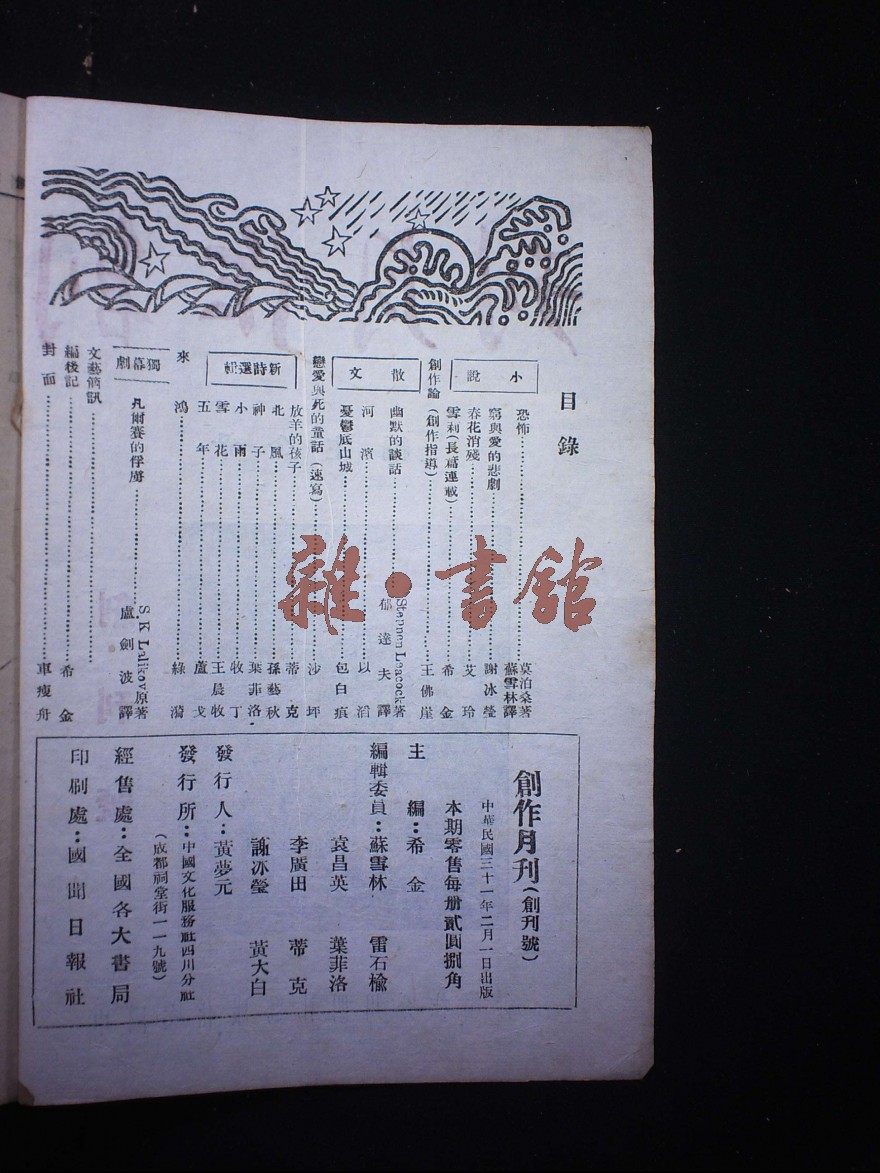 目錄
小說
恐怖……莫泊桑著 蘇雪林譯
窮與愛的悲劇……謝冰瑩
春花消殘……艾玲
雪莉(長篇連載)……希金
創作論(創作指導)……王佛崖
散文
幽默的談話……Stephen Leacock著 郁達夫譯
河濱……以滔
憂鬱底山城……包白痕
戀愛與死的童話(速寫)……沙坪
新詩選輯
放羊的孩子……蒂克
北風……孫藝秋
神子……葉菲洛
小雨……牧丁
雪花……王晨牧
五年……蘆戈
來鴻……綠漪
獨幕劇
凡爾賽的俘虜……S K Lalikov原著 盧劍波譯
文藝簡訊……
編後記……希金
封面……車瘦舟
創作月刊(創刊號)
中華民國三十一年二月一日出版
本期零售每册貳圓捌角
主編:希金
編輯委員:蘇雪林 雷石榆
袁昌英 葉菲洛
李廣田 蒂克
謝冰瑩 黃大白
發行人:黃夢元
發行所:中國文化服務社四川分社
(成都祠堂街一一九號)
經售處:全國各大書局
印刷處:國聞日報社
雜·書館